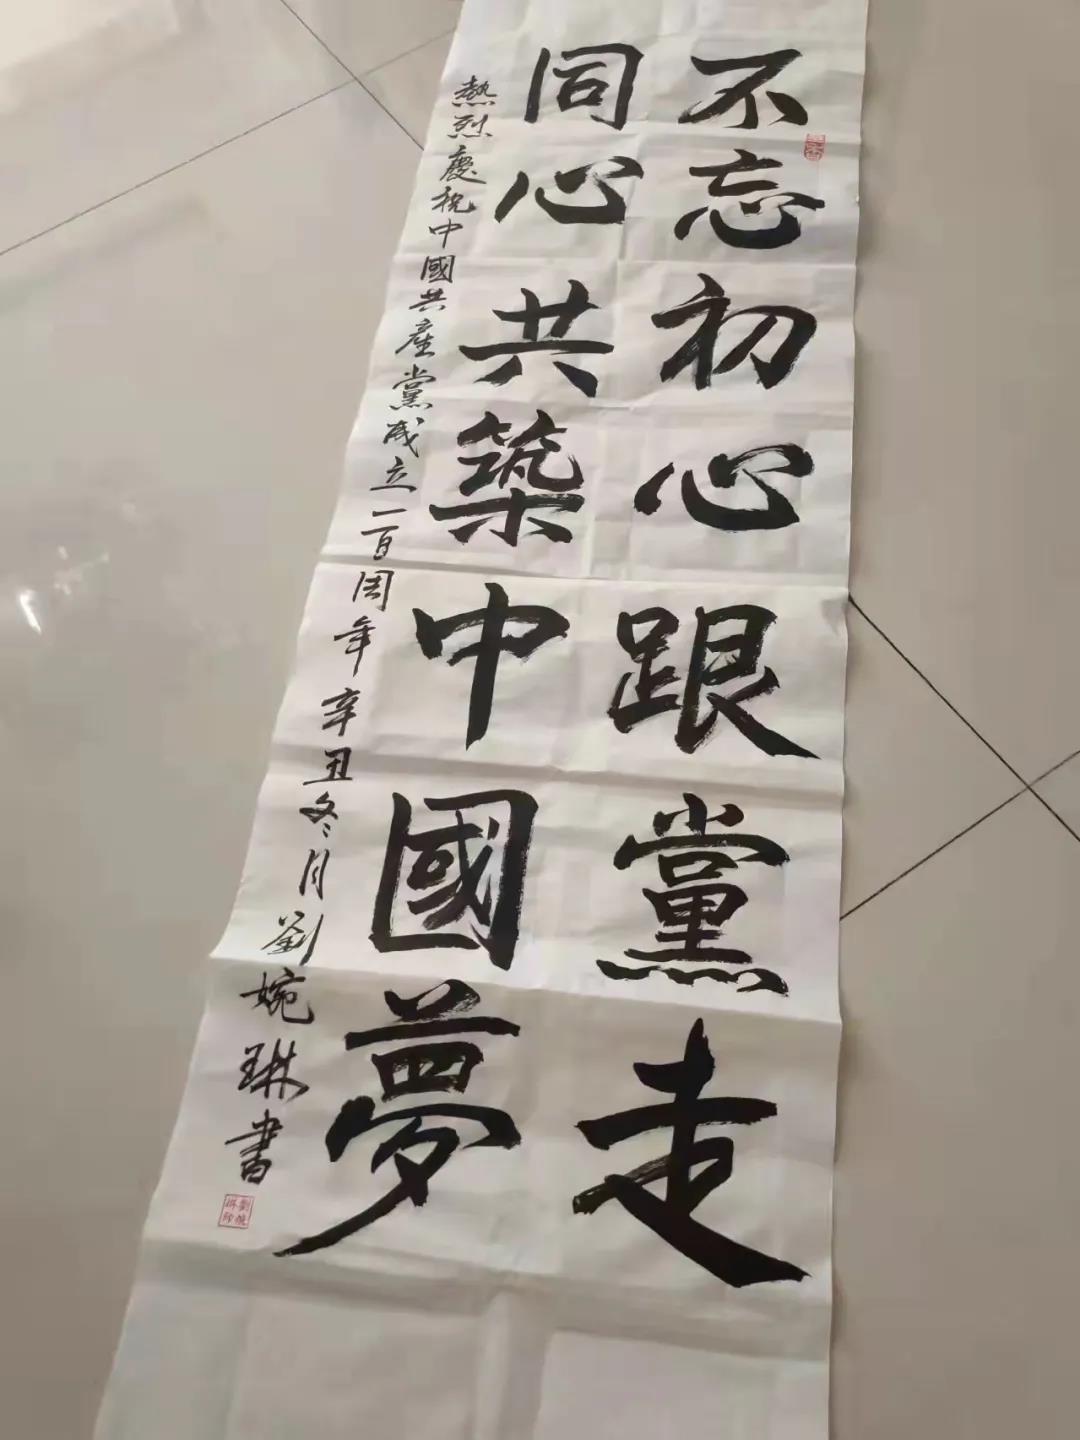 不忘初心跟黨走
同心共築中國夢
熱烈慶祝中國共產黨成立一百周年辛丑冬月劉婉琳書